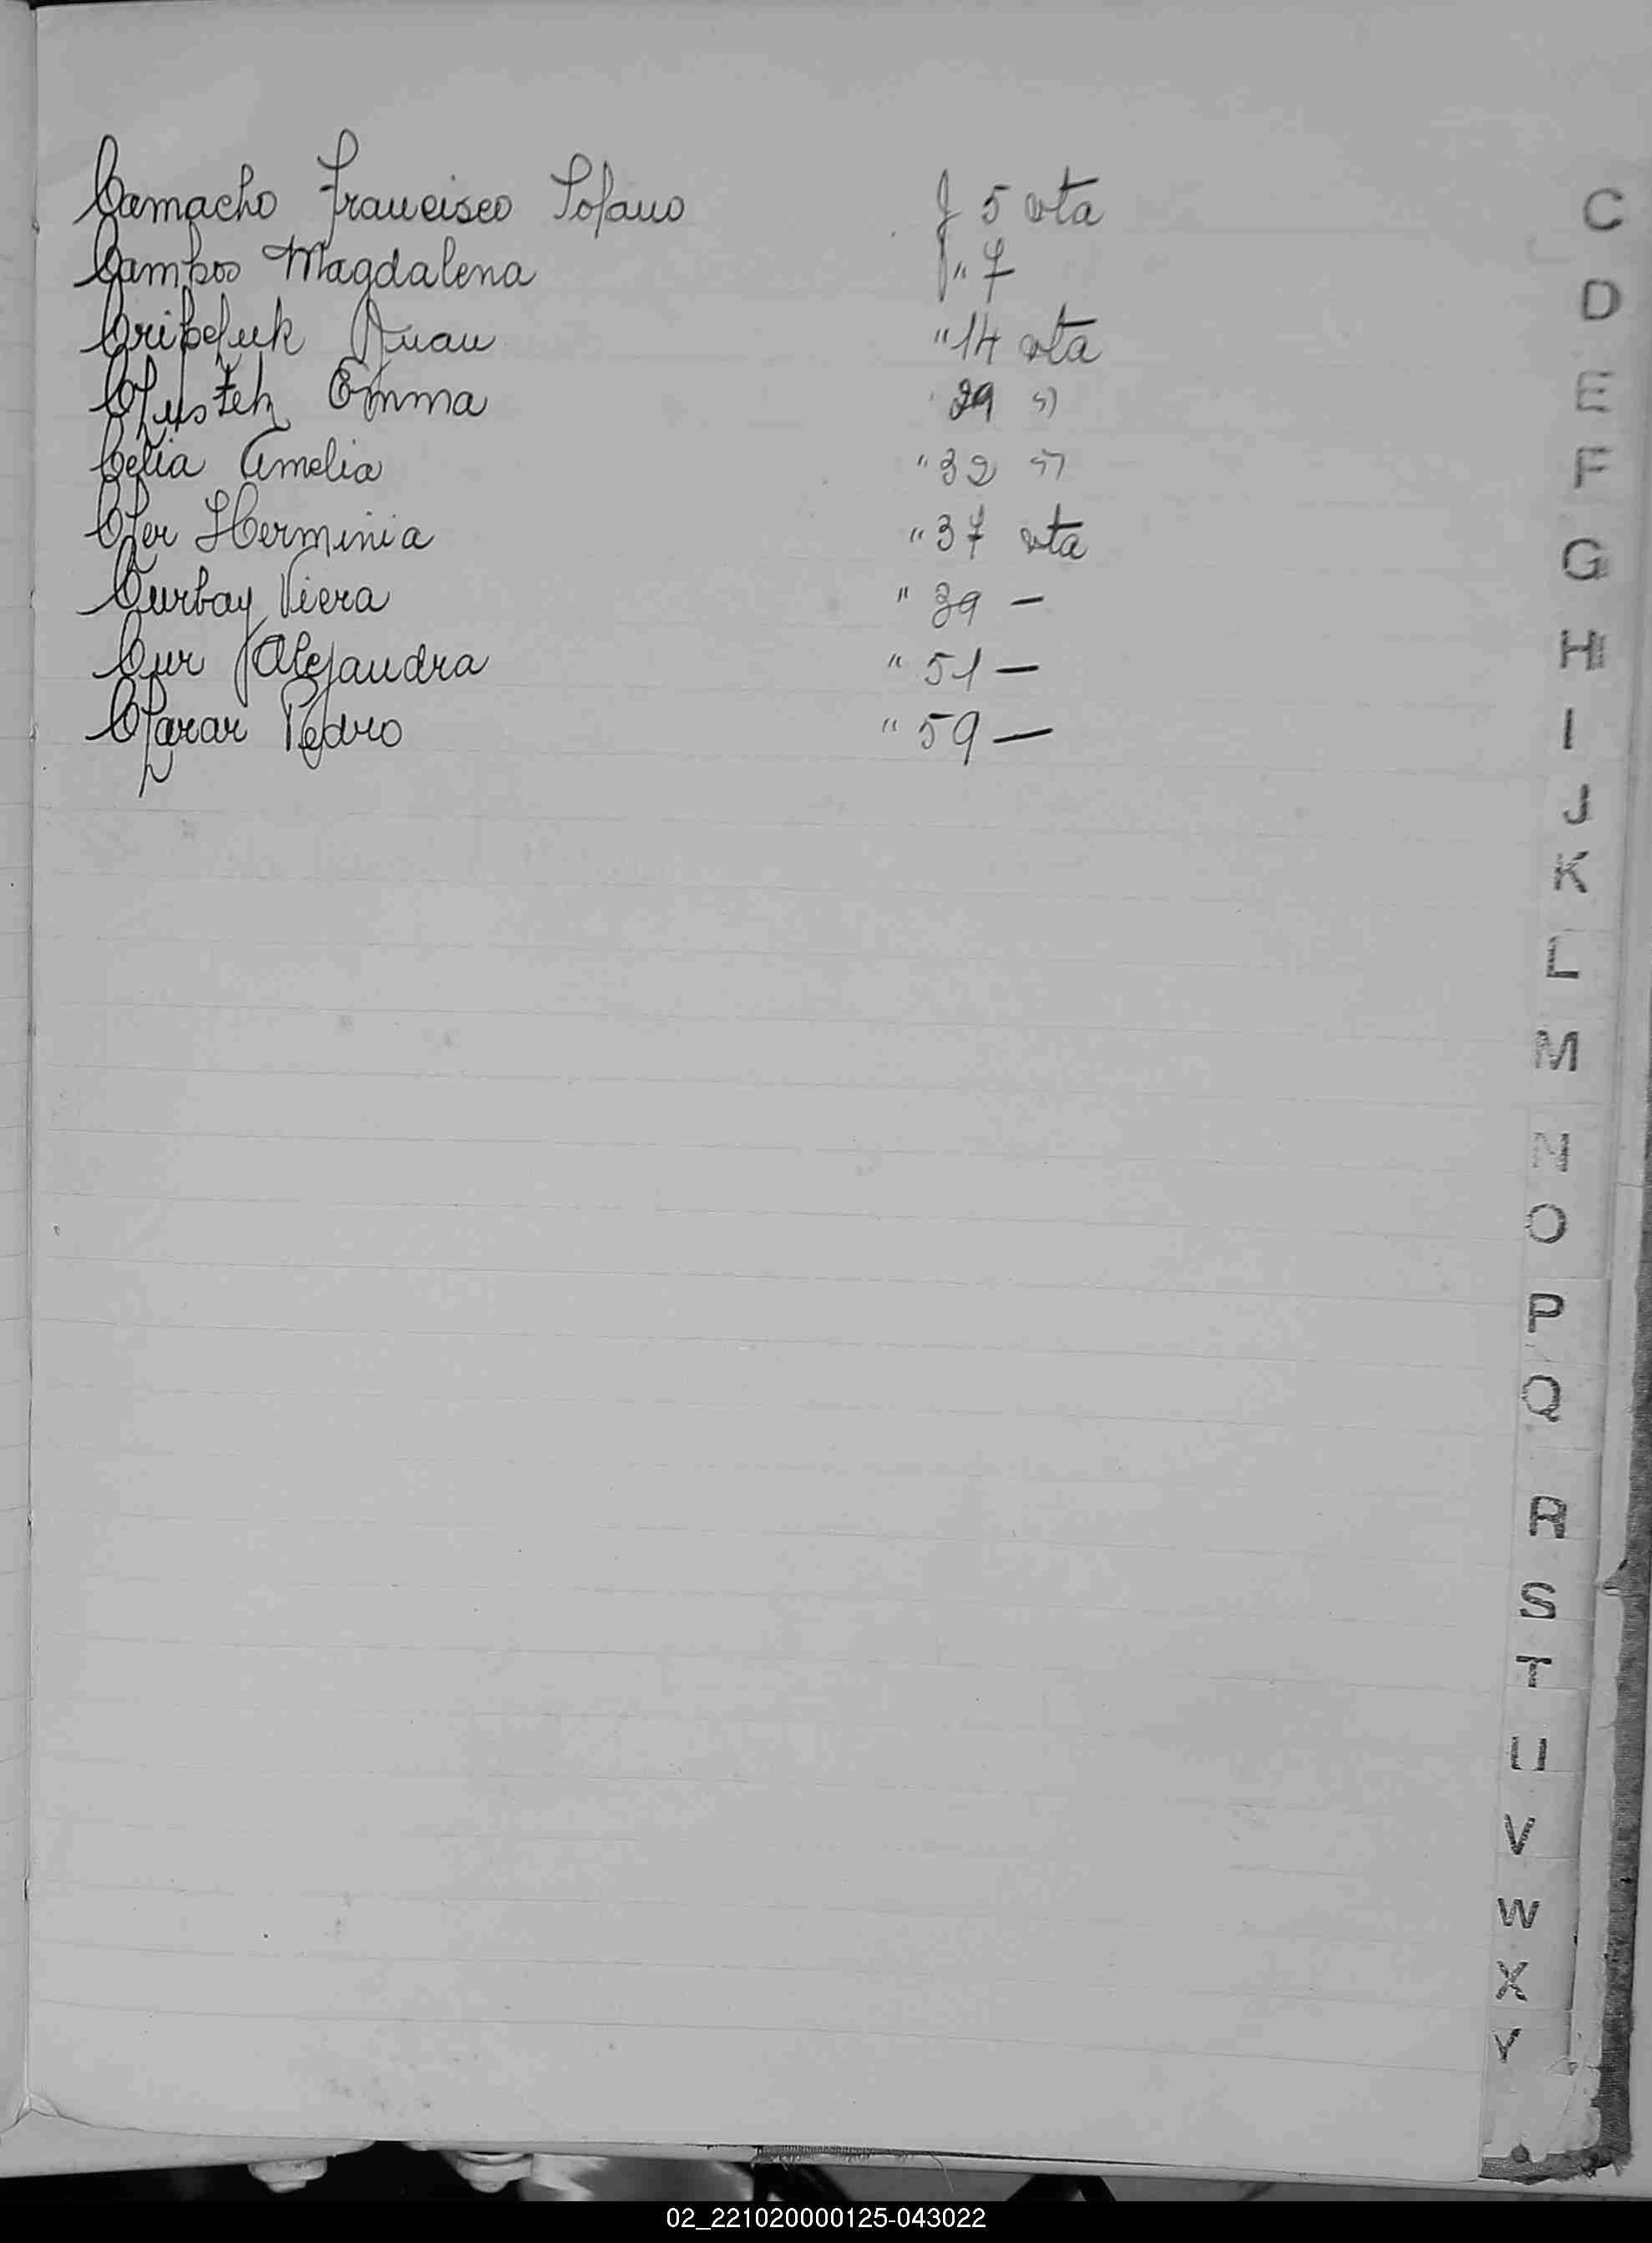 Camacho Francisco Solano f 5 vta
Campos Magdalena " 7
Juan " 14 vta
Emma 29 "
Celia Amelia " 32 "
Herminia " 37 vta
Curbay Viera " 39 —
Cur Alejandra " 51 —
Pedro " 59 —
C
D
E
F
G
H
I
J
K
L
M
N
O
P
Q
R
S
T
U
V
W
X
Y
02_221020000125-043022